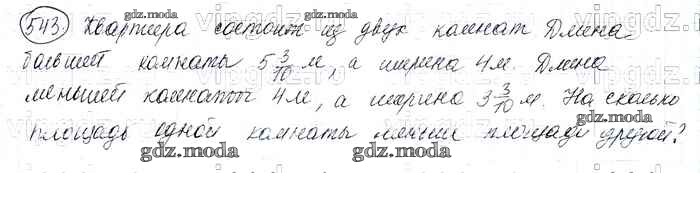 543. Квартира состоит из двух комнат Длина
большей комнаты 5 3/10 м, а ширина 4м. Длина
меньшей комнаты 4м, а ширина 3 3/10 м. На сколько
площадь одной комнаты меньше площади другой?
gdz.moda gdz.moda gdz.moda